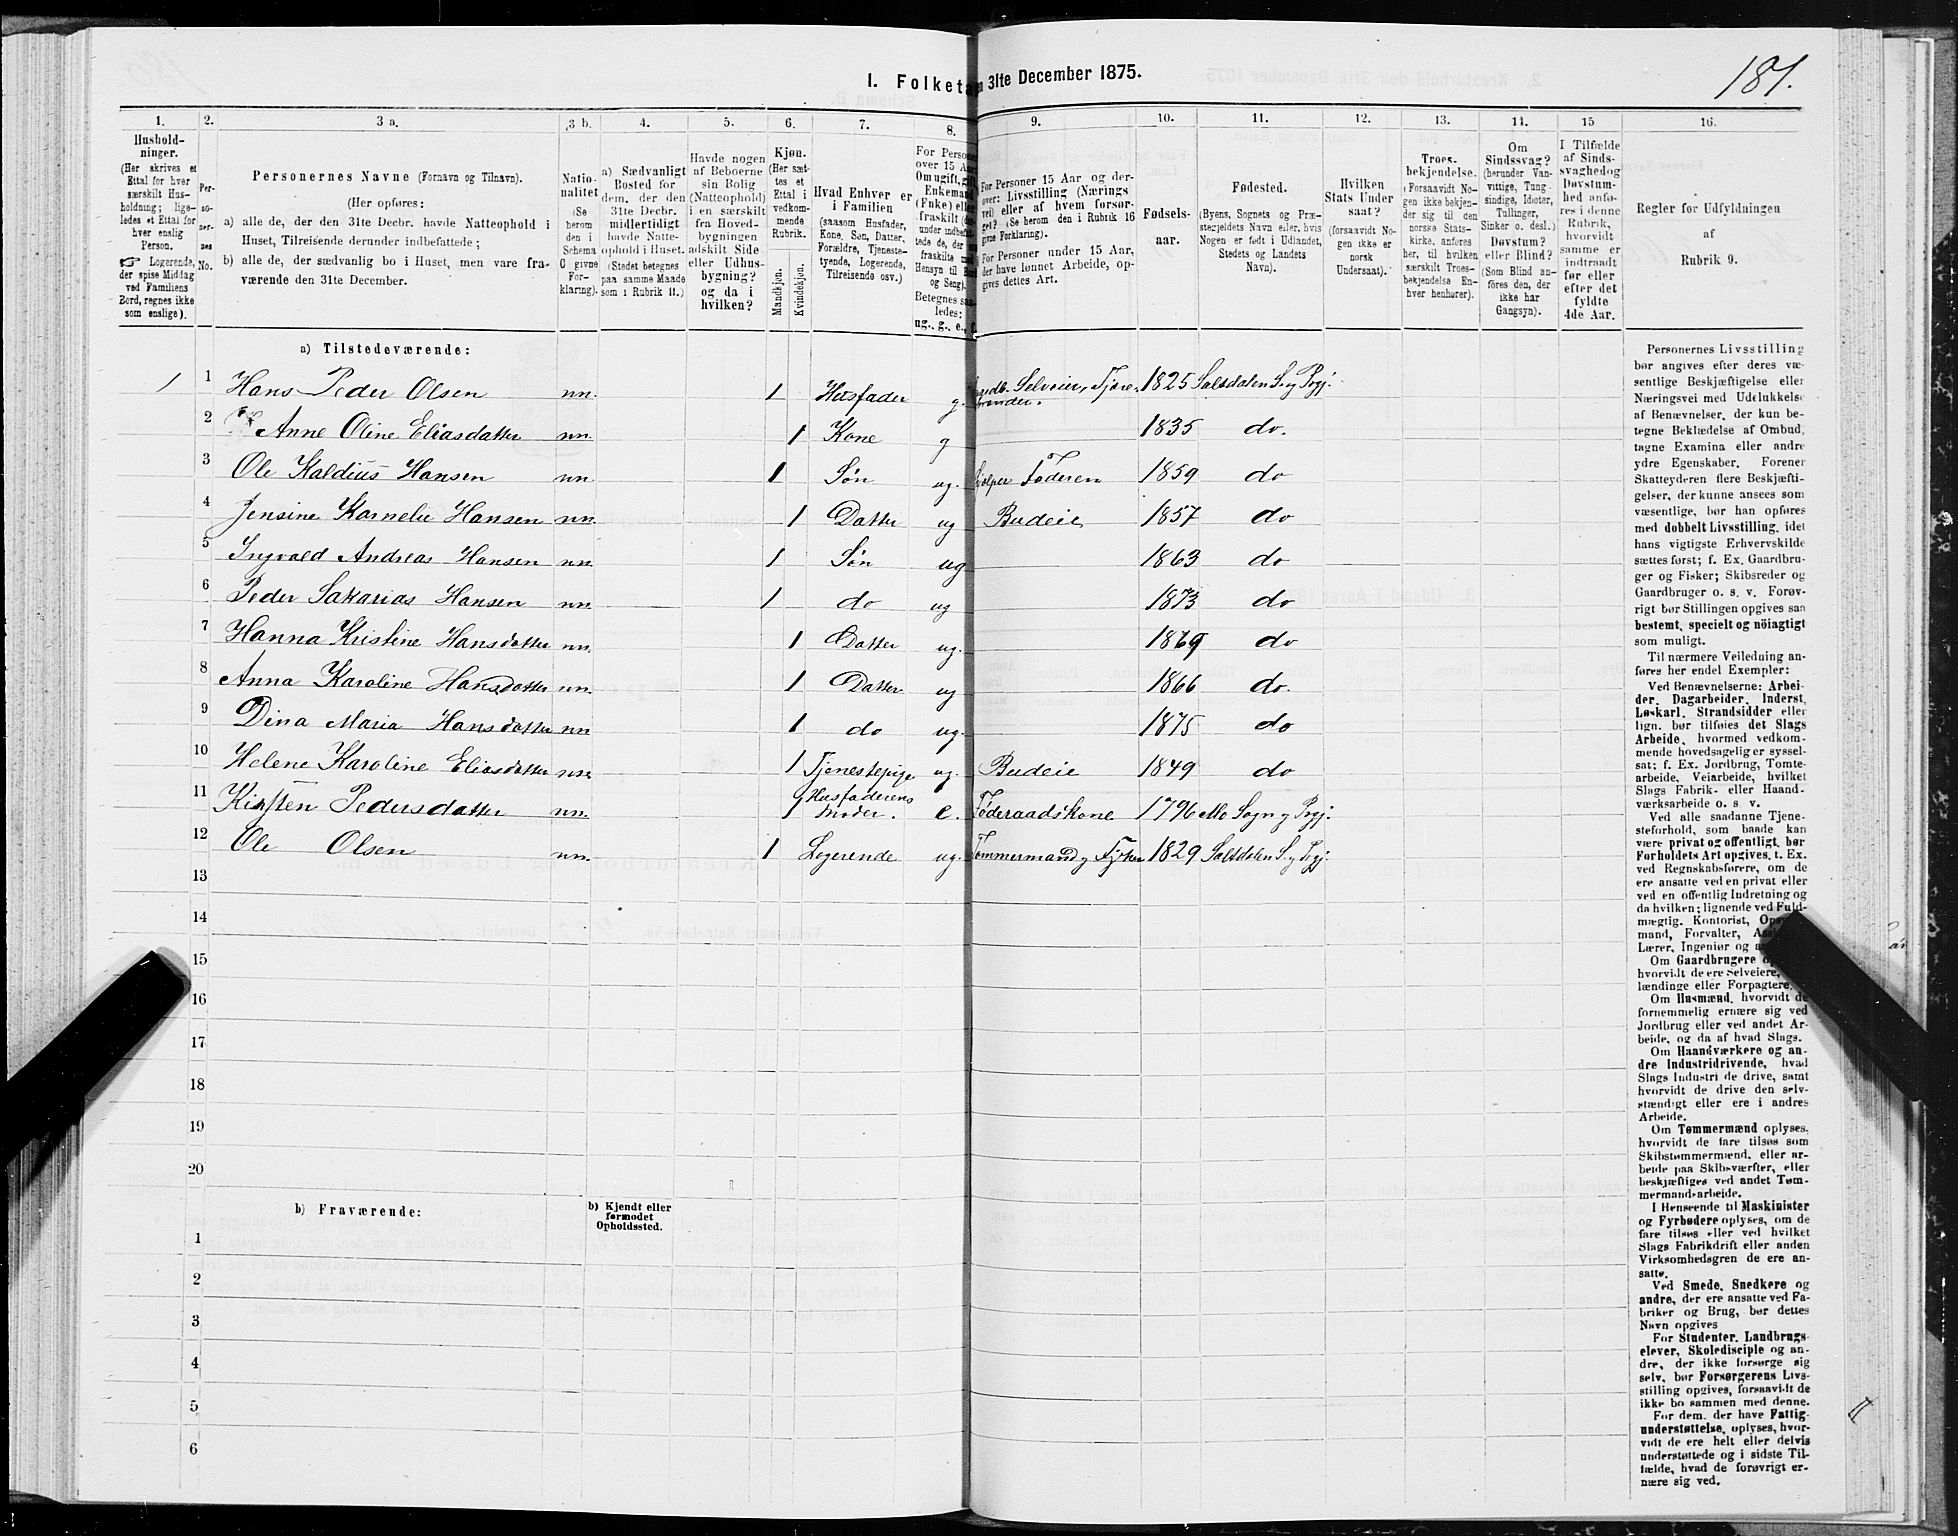 181.
1. Folketa 31te December 1875.
1. 2. 3 a. 3 b. 4. 5. 6. 7. 8. 9. 10. 11. 12. 13. 14. 15 16.
Hushold-
ninger.
(Her skrives et
Ettal for hver
særskilt Hus-
holdning; lige-
ledes et Ettal for
hver enslig
Person.
☞ Logerende,
der spise Middag
ved Familiens
Bord, regnes ikke
som enslige).
Per-
so-
ner-
nes
No.
Personernes Navne (Fornavn og Tilnavn).
(Her opføres:
a) alle de, der den 31te Decbr. havde Natteophold i
Huset, Tilreisende derunder indbefattede;
b) alle de, der sædvanlig bo i Huset, men vare fra-
værende den 31te December.
Natio-
nalitet
(Se
herom
den i
Schema
O givne
For-
klaring).
a) Sædvanligt
Bosted for
dem, der den
31te Decbr.
midlertidigt
havde Natte-
ophold i Huset.
(Stedet betegnes
paa samme Maade
som i Rubrik 11.)
Havde nogen
af Beboerne
sin Bolig
(Natteophold)
i en særskilt
fra Hoved-
bygningen
adskilt Side
eller Udhus-
bygning?
og da i
hvilken?
Kjøn.
(Her sæt-
tes et
Ettal i
vedkom-
mende
Rubrik.
Mandkjøn.
Kvindekjøn.
Hvad Enhver er
i Familien
(saasom Husfader,
Kone, Søn, Datter,
Forældre, Tjeneste-
tyende, Logerende,
Tilreisende osv.)
For Perso
over 15 Aa
Om ugift, gi
Enkeman
(Fuke) ell
fraskilt
under indbe
tede de, der
fraskilte m
Hensyn til Bo
og Seng).
Betegnes saa
ledes:
ug., g., e., f.
For Personer 15 Aar og der-
over: Livsstilling (Nærings
vei) eller af hvem forsør-
get? (Se herom den i Rubrik 16
givne Forklaring).
For Personer under 15 Aar,
der have lønnet Arbeide, op-
gives dettes Art.
Fødsels-
aar.
Fødested.
(Byens, Sognets og Præ-
stegjeldets Navn eller, hvis
Nogen er født i Udlandet,
Stedets og Landets
Navn).
Hvilken
Stats Under
saat?
(forsaavidt No-
gen ikke er
norsk
Undersaat).
Troes-
bekjendelse.
(Forsaavidt No-
gen ikke bekjen-
der sig til den
norske Stats-
kirke, anføres
her, til hvilken
særskilt Troes-
bekjendelse En-
hver henhører).
Om
Sindssvag?
(herunder Van-
vittige, Tung-
sindige, Idioter,
Tullinger,
Sinker o. desl.)
Døvstum?
eller Blind?
(Som Blind an-
føres den, der
ikke har
Gangsyn).
I Tilfælde
af Sinds-
svaghed og
Døvstum-
hed anfø-
res i denne
Rubrik,
hvorvidt
samme er
indtraadt
før eller
efter det
fyldte
4de Aar.
Regler for Udfyldningen
af
Rubrik 9.
a) Tilstedeværende:
1 1 Hans Peder Olsen nn. 1 Husfader g. Selveier, Tjære- 1825 Saltdalen S. og Prgj.
brænder.
2 Anne Oline Eliasdatter nn. 1 Kone g 1835 do.
3 Ole Kaldius Hansen nn. 1 Søn ug. hjælper Faderen 1859 do
4 Jensine Kornelie Hansen nn. 1 Datter ug Budeie 1857 do
5 Ingvald Andreas Hansen nn. 1 Søn ug 1863 do
6 Peder Sakarias Hansen nn. 1 do ug 1873 do
7 Hanna Kristine Hansdatter nn. 1 Datter ug. 1869 do
8 Anna Karoline Hansdatter nn. 1 Datter ug 1866 do.
9 Dina Maria Hansdatter nn 1 do ug. 1875 do
10 Helene Karoline Eliasdatter nn. 1 Tjenestepige ug. Budeie 1849 do
11 Kirsten Pedersdatter nn. 1 Husfaderens Moder. e. Føderaadskone 1796 Mo Sogn og Prgj.
12 Ole Olsen nn. 1 Logerende ug. Tømmermand og Fisker 1829 Saltdalen S. og Prgj.
13
14
15
16
17
18
19
20
b) Fraværende:
b) Kjendt eller
formodet
Opholdssted.
1
2
3
4
5
6
Personernes Livsstilling
bør angives efter deres væ-
sentlige Beskjæftigelse eller
Næringsvei med Udelukkelse
af Benævnelser, der kun be-
tegne Beklædelse af Ombud,
tagne Examina eller andre
ydre Egenskaber. Forener
Skatteyderen flere Beskjæfti-
gelser, der kunne ansees som
væsentlige, bør han opføres
med dobbelt Livsstilling, idet
hans vigtigste Erhvervskilde
sættes først; f. Ex. Gaardbru-
ger og Fisker; Skibsreder og
Gaardbruger o. s. v. Forøv-
rigt bør Stillingen opgives saa
bestemt, specielt og nöiagtigt
som muligt.
Til nærmere Veiledning an-
føres her endel Exempler:
Ved Benævnelserne: Arbei-
der, Dagarbeider, Inderst,
Løskarl, Strandsidder eller
lign. bør tilføies det Slags
Arbeide, hvormed vedkom-
mende hovedsagelig er syssel-
sat; f. Ex. Jordbrug, Tomte-
arbeide, Veiarbeide, hvilket
Slags Fabrik- eller Haand-
værksarbeide o. s. v.
Ved alle saadanne Tjene-
steforhold, som baade kan
være privat og offentligt, bør
Forholdets Art opgives, t. Ex.
ved Regnskabsførere, om de
ere ansatte ved en privat eller
ved en offentlig Indretning og
da hvilken; lignende ved Fuld-
mægtig, Kontorist,
mand, Forvalter,
Lærer, Ingeniør og
Om Gaardbrugere
hvorvidt de ere Selveiere,
lændinge eller Forpagtere.
Om Husmænd, hvorvidt de
fornemmelig ernære sig ved
Jordbrug eller ved andet Ar-
beide, og da af hvad Slags.
Om Haandværkere og an-
dre Industridrivende, hvad
Slags Industri de drive, samt
hvorvidt de drive den selv-
stændigt eller ere i andres
Arbeide.
Om Tømmermænd oplyses,
hvorvidt de fare tilsøs som
Skibstømmermænd, eller ar-
beide paa Skibsværfter, eller
beskjæftiges ved andet Tøm-
mermandsarbeide.
I Henseende til Maskinister
og Fyrbødere oplyses, om de
fare tilsøs eller ved hvilket
Slags Fabrikdrift eller anden
Virksomhedsgren de ere an-
satte.
Ved Smede, Snedkere og
andre, der ere ansatte ved Fa-
briker og Brug, bør dettes
Navn opgives
For Studenter, Landbrugs-
elever, Skoledisciple og an-
dre, der ikke forsørge sig
selv, bør Forsørgerens Livs-
stilling opgives, forsaavidt de
ikke bo sammen med denne.
For dem, der have Fattig-
understøttelse, oplyses, hvor-
vidt de ere helt eller delvis
understøttede og i sidste Til-
fælde, hvad de forøvrigt er-
nære sig ved.